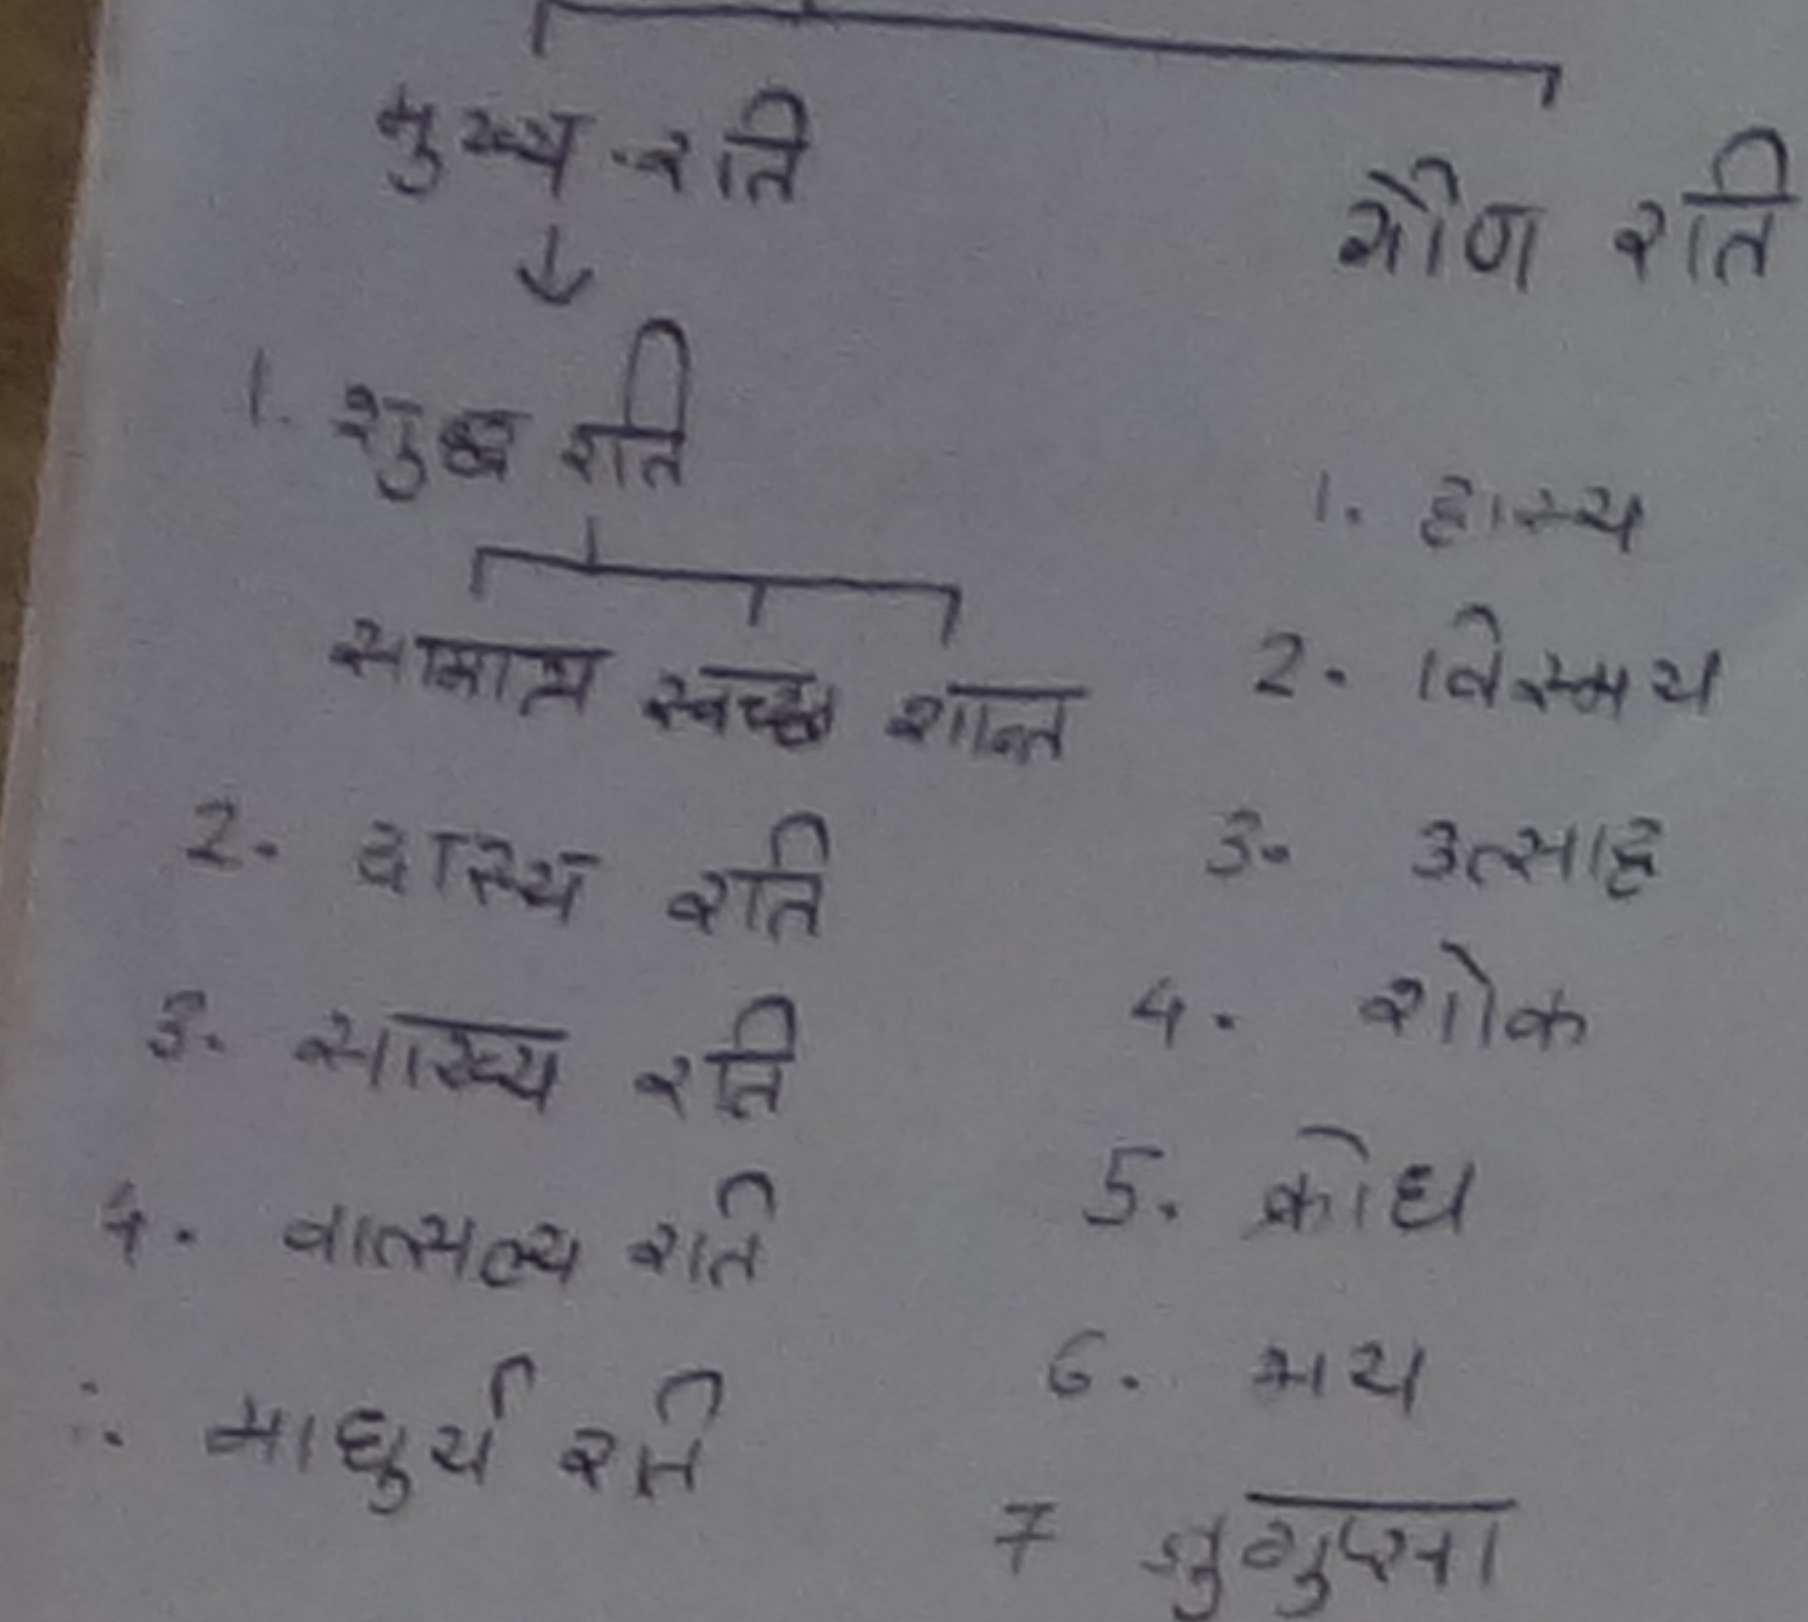 मुख्य रति
गौण रति
1. शुद्ध रति
सामान्य स्वच्छ शान्त
2. दास्य रति
3. साख्य रति
4. वात्सल्य रति
माधुर्य रति
1. हास्य
2. विस्मय
3. उत्साह
4. शोक
5. क्रोध
6. भय
7 जुगुप्सा